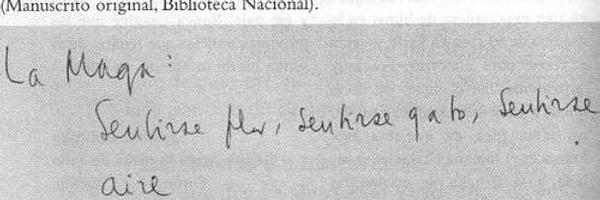 (Manuscrito original, Biblioteca Nacional).
La Maga:
Sentirse flor, sentirse gato, sentirse
aire